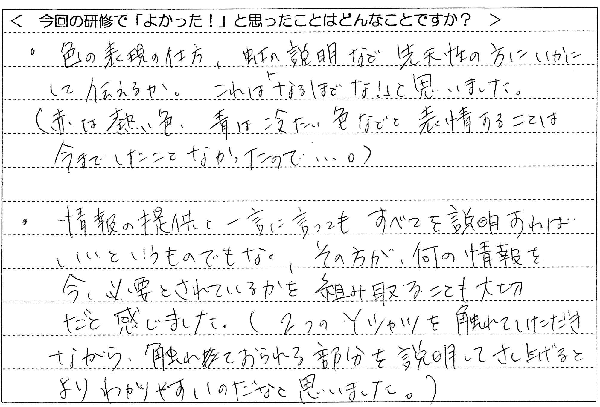 ＜ 今回の研修で「よかった！」と思ったことはどんなことですか？ ＞
・色の表現の仕方、虹の説明など先天性の方にいかに
して伝えるか。これは「なるほどな！」と思いました。
（赤は熱い色、青は冷たい色などと表情することは
今までしたことなかったので…。）
・情報の提供と一言に言ってもすべてを説明すれば
いいというものでもなく、その方が、何の情報を
今、必要とされているかを組み取ることも大切
だと感じました。（2つのYシャツを触れていただき
ながら、触れておられる部分を説明してさし上げると
よりわかりやすいのだなと思いました。）